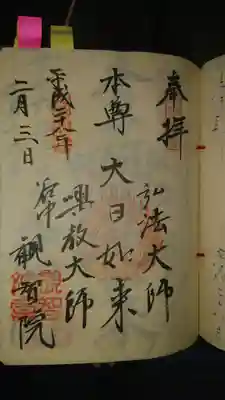 奉拝
弘法大師
本尊 大日如来
興教大師
平成二十九年
二月三日
谷中 観智院